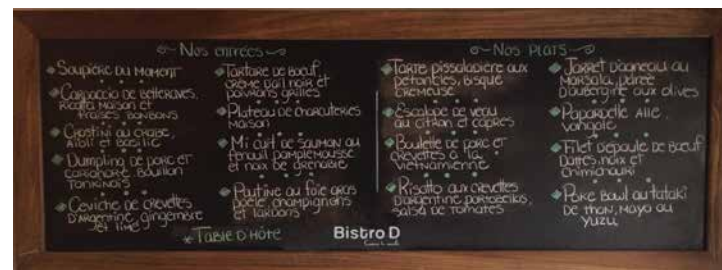 Nos entrées
Soupière du moment
Carpaccio de betteraves,
ricotta maison et
fraises bonbons
Crostini au crabe,
aïoli et basilic
Dumpling de porc et
coriandre, bouillon
tonkinois
Ceviche de crevettes
d'argentine, gingembre
et lime
Tartare de boeuf,
crème d'ail noir et
poivrons grillés
Plateau de charcuteries
maison
Mi cuit de saumon au
fenouil pamplemousse
et noix de grenoble
Poutine au foie gras
poêlé, champignons
et lardons
* Table d'hôte
Bistro D
Nos plats
Tarte pissaladière aux
pétoncles, bisque
crémeuse
Escalope de veau
au citron et câpres
Boulette de porc et
crevettes à la
vietnamienne
Risotto aux crevettes
d'argentine portobellos,
salsa de tomates
Jarret d'agneau au
marsala, purée
d'aubergine aux olives
Papardelle Alle
vongole
Filet d'épaule de boeuf
dattes, noix et
chimichuri
Poke bowl au tataki
de thon, mayo au
yuzu